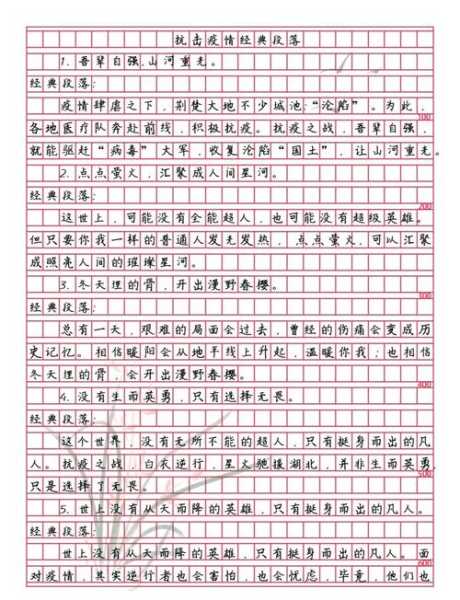 抗击疫情经典段落
1. 吾辈自强,山河重光。
经典段落:
疫情肆虐之下,荆楚大地不少城池“沦陷”。为此,
100
各地医疗队奔赴前线,积极抗疫。抗疫之战,吾辈自强,
就能驱赶“病毒”大军,收复沦陷“国土”,让山河重光。
2. 点点萤火,汇聚成人间星河。
经典段落:
200
这世上,可能没有全能超人,也可能没有超级英雄。
但只要你我一样的普通人发光发热,点点萤火,可以汇聚
成照亮人间的璀璨星河。
3. 冬天埋的骨,开出漫野春樱。
300
经典段落:
总有一天,艰难的局面会过去,曾经的伤痛会变成历
史记忆。相信暖阳会从地平线上升起,温暖你我;也相信
冬天埋的骨,会开出漫野春樱。
400
4. 没有生而英勇,只有选择无畏。
经典段落:
这个世界,没有无所不能的超人,只有挺身而出的凡
人。抗疫之战,白衣逆行,星火驰援湖北,并非生而英勇,
500
只是选择了无畏。
5. 世上没有从天而降的英雄,只有挺身而出的凡人。
经典段落:
世上没有从天而降的英雄,只有挺身而出的凡人。面
600
对疫情,其实逆行者也会害怕,也会忧虑,毕竟,他们也